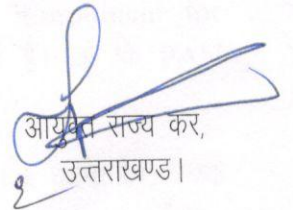 आयुक्त राज्य कर,
उत्तराखण्ड।